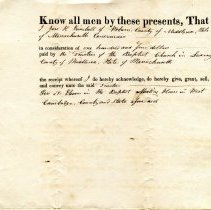 Know all men by these presents, That
I Jos. R. Kendall of Woburn County of Middlesex, State
of Massachusetts
in consideration of one hundred and four dollars
paid by the Trustees of the Baptist Church in
County of Middlesex, State of Massachusetts
the receipt whereof I do hereby acknowledge, do hereby give, grant, sell,
and convey unto the said Trustees
Pew No. Eleven in the Baptist Meeting House in West
Cambridge County and State aforesaid